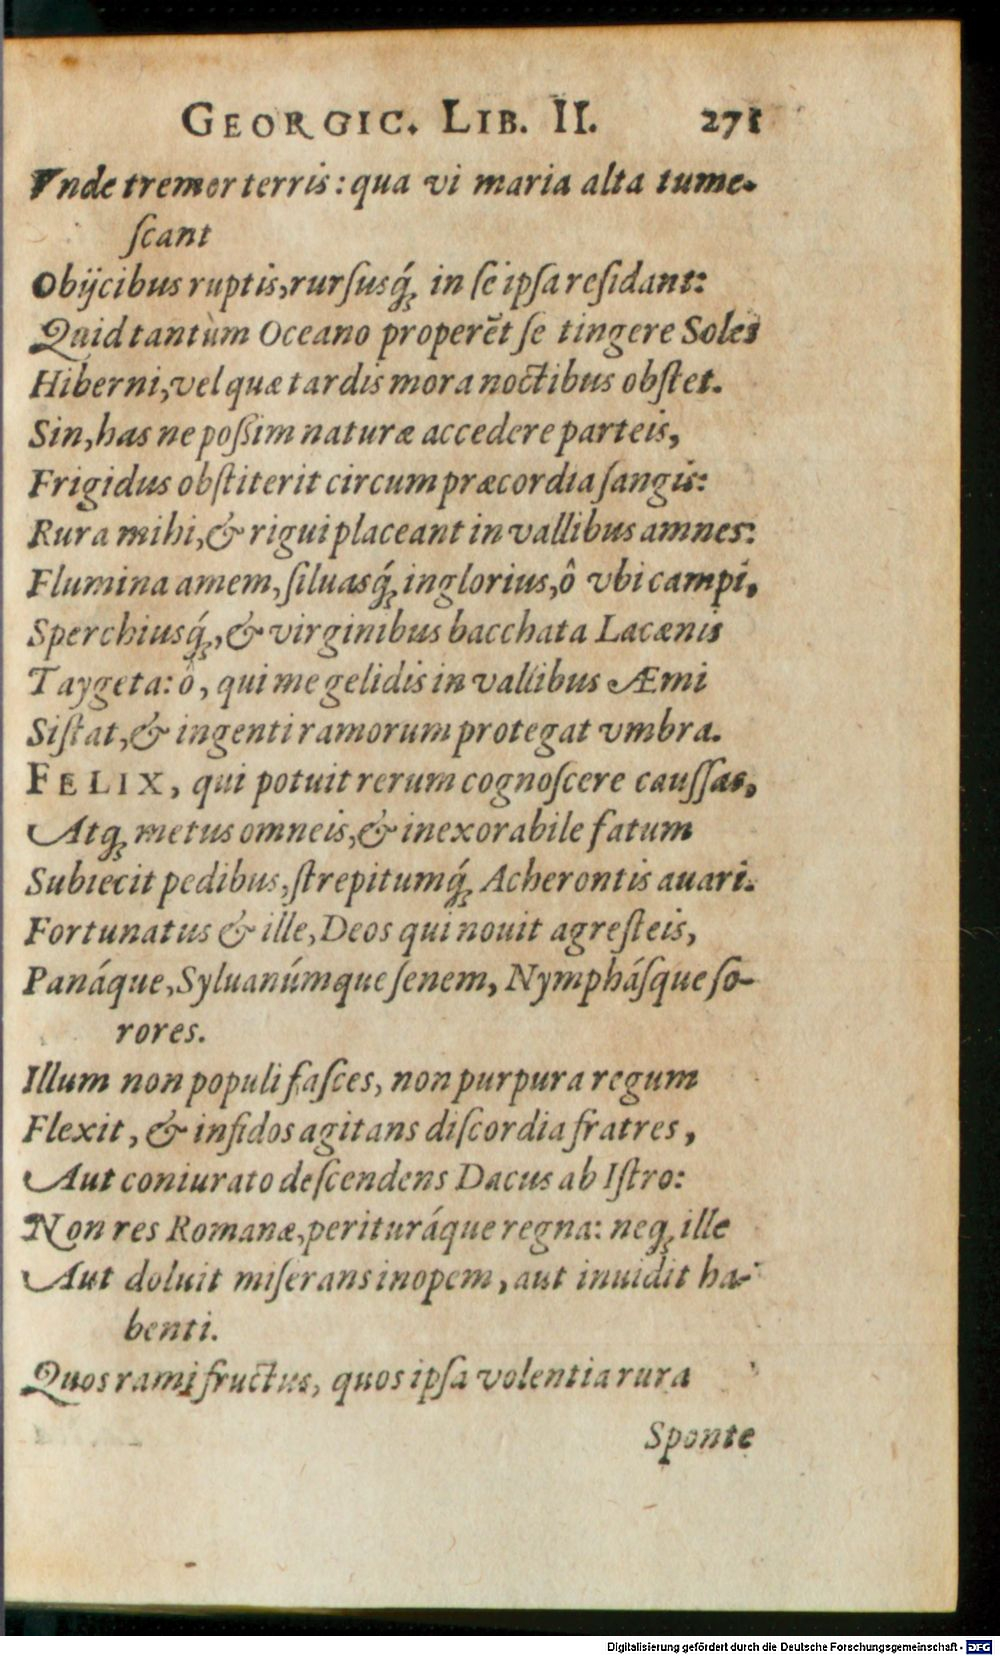 GEORGIC. LIB. II. 271
Vnde tremor terris: qua vi maria alta tume-
ſcant
Obijcibus ruptis, rurſusq́; in ſe ipſa reſidant:
Quid tantùm Oceano properēt ſe tingere Soles
Hiberni, vel quæ tardis mora noctibus obſtet.
Sin, has ne poſſim naturæ accedere parteis,
Frigidus obſtiterit circum præcordia ſangis:
Rura mihi, & rigui placeant in vallibus amnes:
Flumina amem, ſiluasq́; inglorius, ô vbi campi,
Sperchiusq́;, & virginibus bacchata Lacænis
Taygeta: ô, qui me gelidis in vallibus Æmi
Siſtat, & ingenti ramorum protegat vmbra.
FELIX, qui potuit rerum cognoſcere cauſſas,
Atq; metus omneis, & inexorabile fatum
Subiecit pedibus, ſtrepitumq́; Acherontis auari.
Fortunatus & ille, Deos qui nouit agreſteis,
Panáque, Syluanúmque ſenem, Nymphásſque ſo-
rores.
Illum non populi faſces, non purpura regum
Flexit, & infidos agitans diſcordia fratres,
Aut coniurato deſcendens Dacus ab Iſtro:
Non res Romanæ, perituráque regna: neq; ille
Aut doluit miſerans inopem, aut inuidit ha-
benti.
Quos rami fructus, quos ipſa volentia rura
Sponte
Digitalisierung gefördert durch die Deutsche Forschungsgemeinschaft - DFG